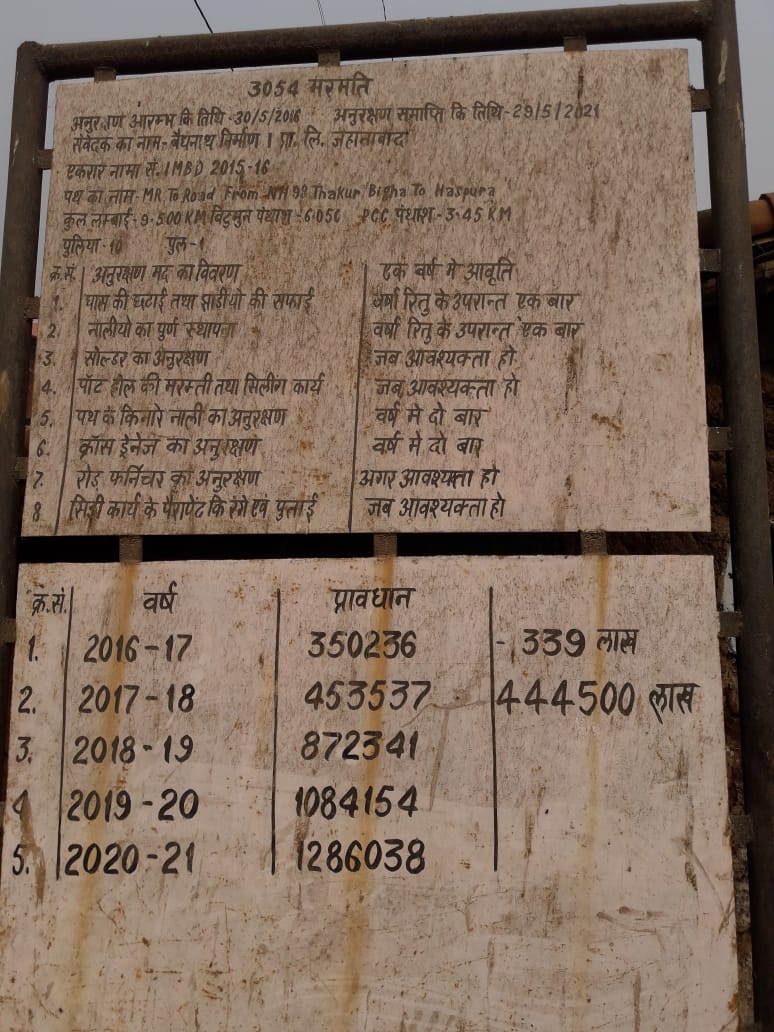 3054 मरमति
अनुरक्षण आरम्भ कि तिथि-30/5/2016 अनुरक्षण समाप्ति कि तिथि-29/5/2021
संवेदक का नाम- बैधनाथ निर्माण । प्रा. लि. जहानाबाद
एकरार नामा सं. 1MBD 2015-16
पथ का नाम-MR To Road From NH 98 Thakur Bigha To Haspura
कुल लम्बाई-9.500 KM विटुमुन पंथाश-6.056 PCC पंथाश-3.45 KM
पुलिया-10 पुल-1
क्र.सं. अनुरक्षण मद का विवरण एक वर्ष मे आवृति
1. घास की छटाई तथा झाडीयो की सफाई वर्षा रितु के उपरान्त एक बार
2. नालीयो का पुर्ण स्थापना वर्षा रितु के उपरान्त एक बार
3. सोल्डर का अनुरक्षण जब आवश्यक्ता हो
4. पॉट होल की मरम्ती तथा सिलींग कार्य जब आवश्यक्ता हो
5. पथ के किनारे नाली का अनुरक्षण वर्ष मे दो बार
6. क्रॉस ड्रेनेज का अनुरक्षण वर्ष मे दो बार
7. रोड फर्निचर का अनुरक्षण अगर आवश्यक्ता हो
8 सिडी कार्य के पैरापेंट कि रंगे एवं पुताई जब आवश्यक्ता हो
क्र.सं. वर्ष प्रावधान
1. 2016-17 350236 - 339 लाख
2. 2017-18 453537 444500 लाख
3. 2018-19 872341
4 2019-20 1084154
5. 2020-21 1286038